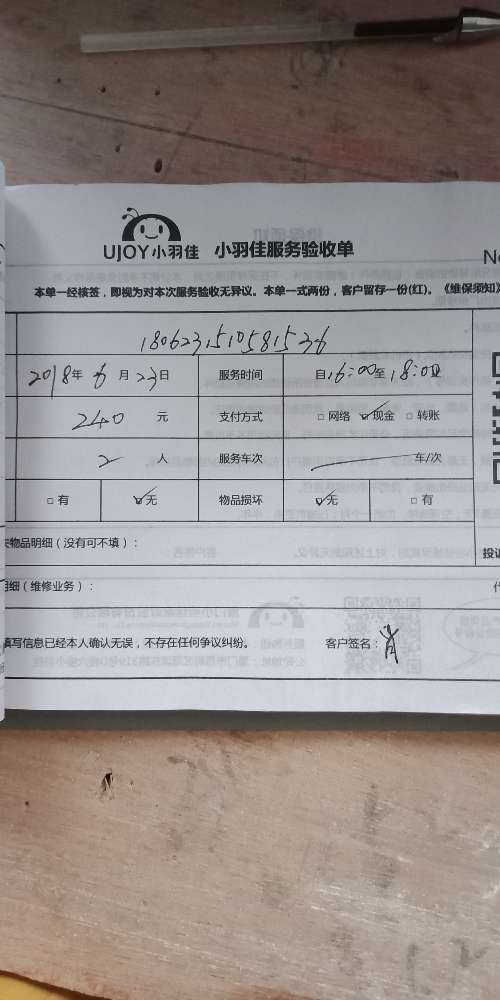 UJOY小羽佳 小羽佳服务验收单
No
本单一经核签，即视为对本次服务验收无异议。本单一式两份，客户留存一份(红)。《维保须知》
1806231510581536
2018年6月23日 服务时间 自16:00至18:00
240 元 支付方式 □网络 ☑现金 □转账
2 人 服务车次 车/次
□有 ☑无 物品损坏 ☑无 □有
物品明细（没有可不填）：
投诉
明细（维修业务）：
填写信息已经本人确认无误，不存在任何争议纠纷。 客户签名：肖